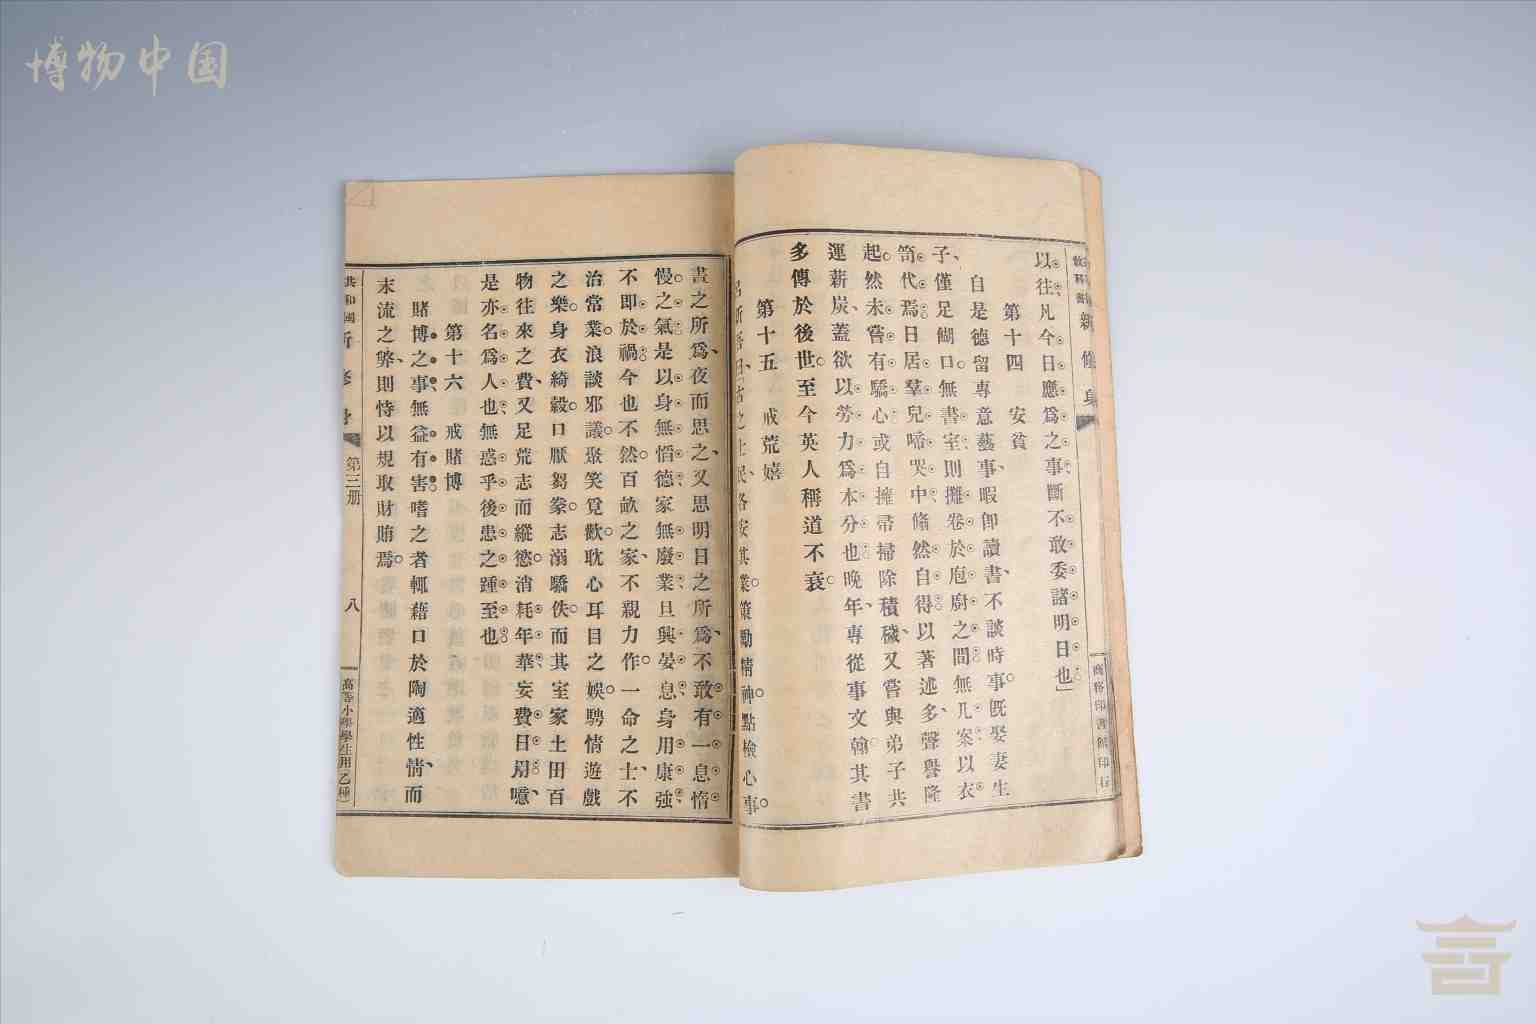 博物中国
教科書 新修身
商務印書館印行
以往、凡今日應為之事、斷不敢委諸明日也」
第十四 安貧
自是德留專意藝事、暇卽讀書、不談時事。旣娶妻生
子、僅足餬口。無書室、則攤卷於庖廚之間。無几案、以衣
笥代焉。日居羣兒啼哭中、翛然自得。以著述多、聲譽隆
起。然未嘗有驕心。或自擁帚掃除積穢、又嘗與弟子共
運薪炭、蓋欲以勞力為本分也。晚年、專從事文翰。其書
多傳於後世。至今英人稱道不衰。
第十五 戒荒嬉
呂新吾曰、「古之士民、各安其業。策勵精神。點檢心事。
晝之所為、夜而思之、又思明日之所為、不敢有一息惰
慢之氣。是以身無慆德、家無廢業。旦興晏息、身用康強、
不卽於禍。今也不然。百畝之家、不親力作。一命之士、不
治常業。浪談邪議。聚笑覓歡。耽心耳目之娛。騁情遊戲
之樂。身衣綺縠。口厭芻豢。志溺驕佚。而其室家土田百
物往來之費、又足荒志而縱慾。消耗年華、妄費日用。噫、
是亦名為人也、無惑乎後患之踵至也。
第十六 戒賭博
賭博之事、無益有害。嗜之者輒藉口於陶適性情、而
末流之弊、則恃以規取財賄焉。
共和國 新修身
第三册
八
高等小學學生用（乙種）